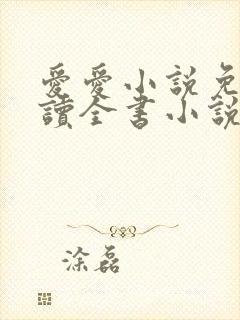 愛愛小說免
讀全書小說
涂磊